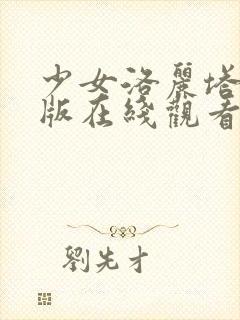 少女洛麗塔
版在綫觀看
劉先才